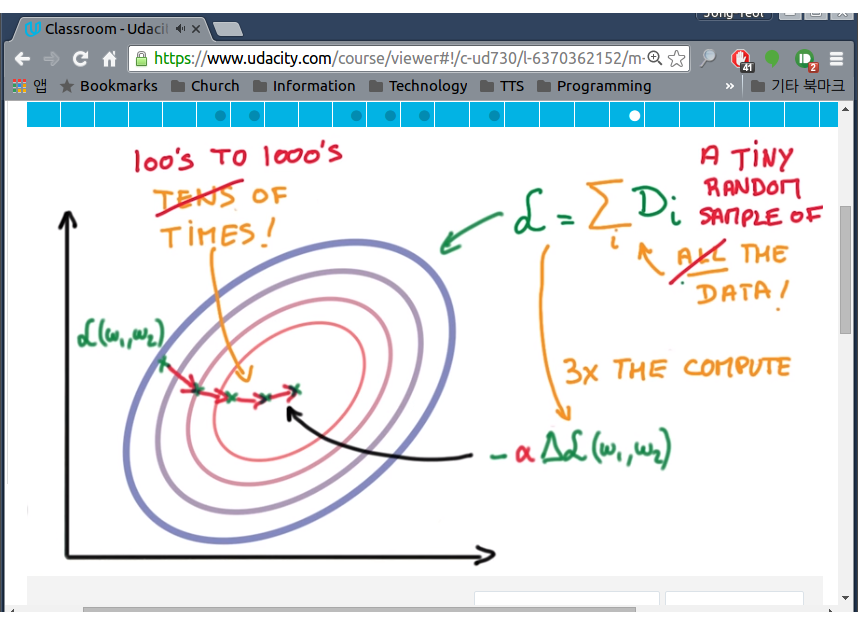 Jong Yeol
Classroom - Udaci
https://www.udacity.com/course/viewer#!/c-ud730/l-6370362152/m-
41
2
앱 Bookmarks Church Information Technology TTS Programming » 기타 북마크
100'S TO 1000'S
TENS OF
TIMES!
A TINY
RANDOM
SAMPLE OF
ALL THE
DATA!
ℒ = Σ Di
i
ℒ(ω₁,ω₂)
3X THE COMPUTE
-α Δℒ(ω₁,ω₂)